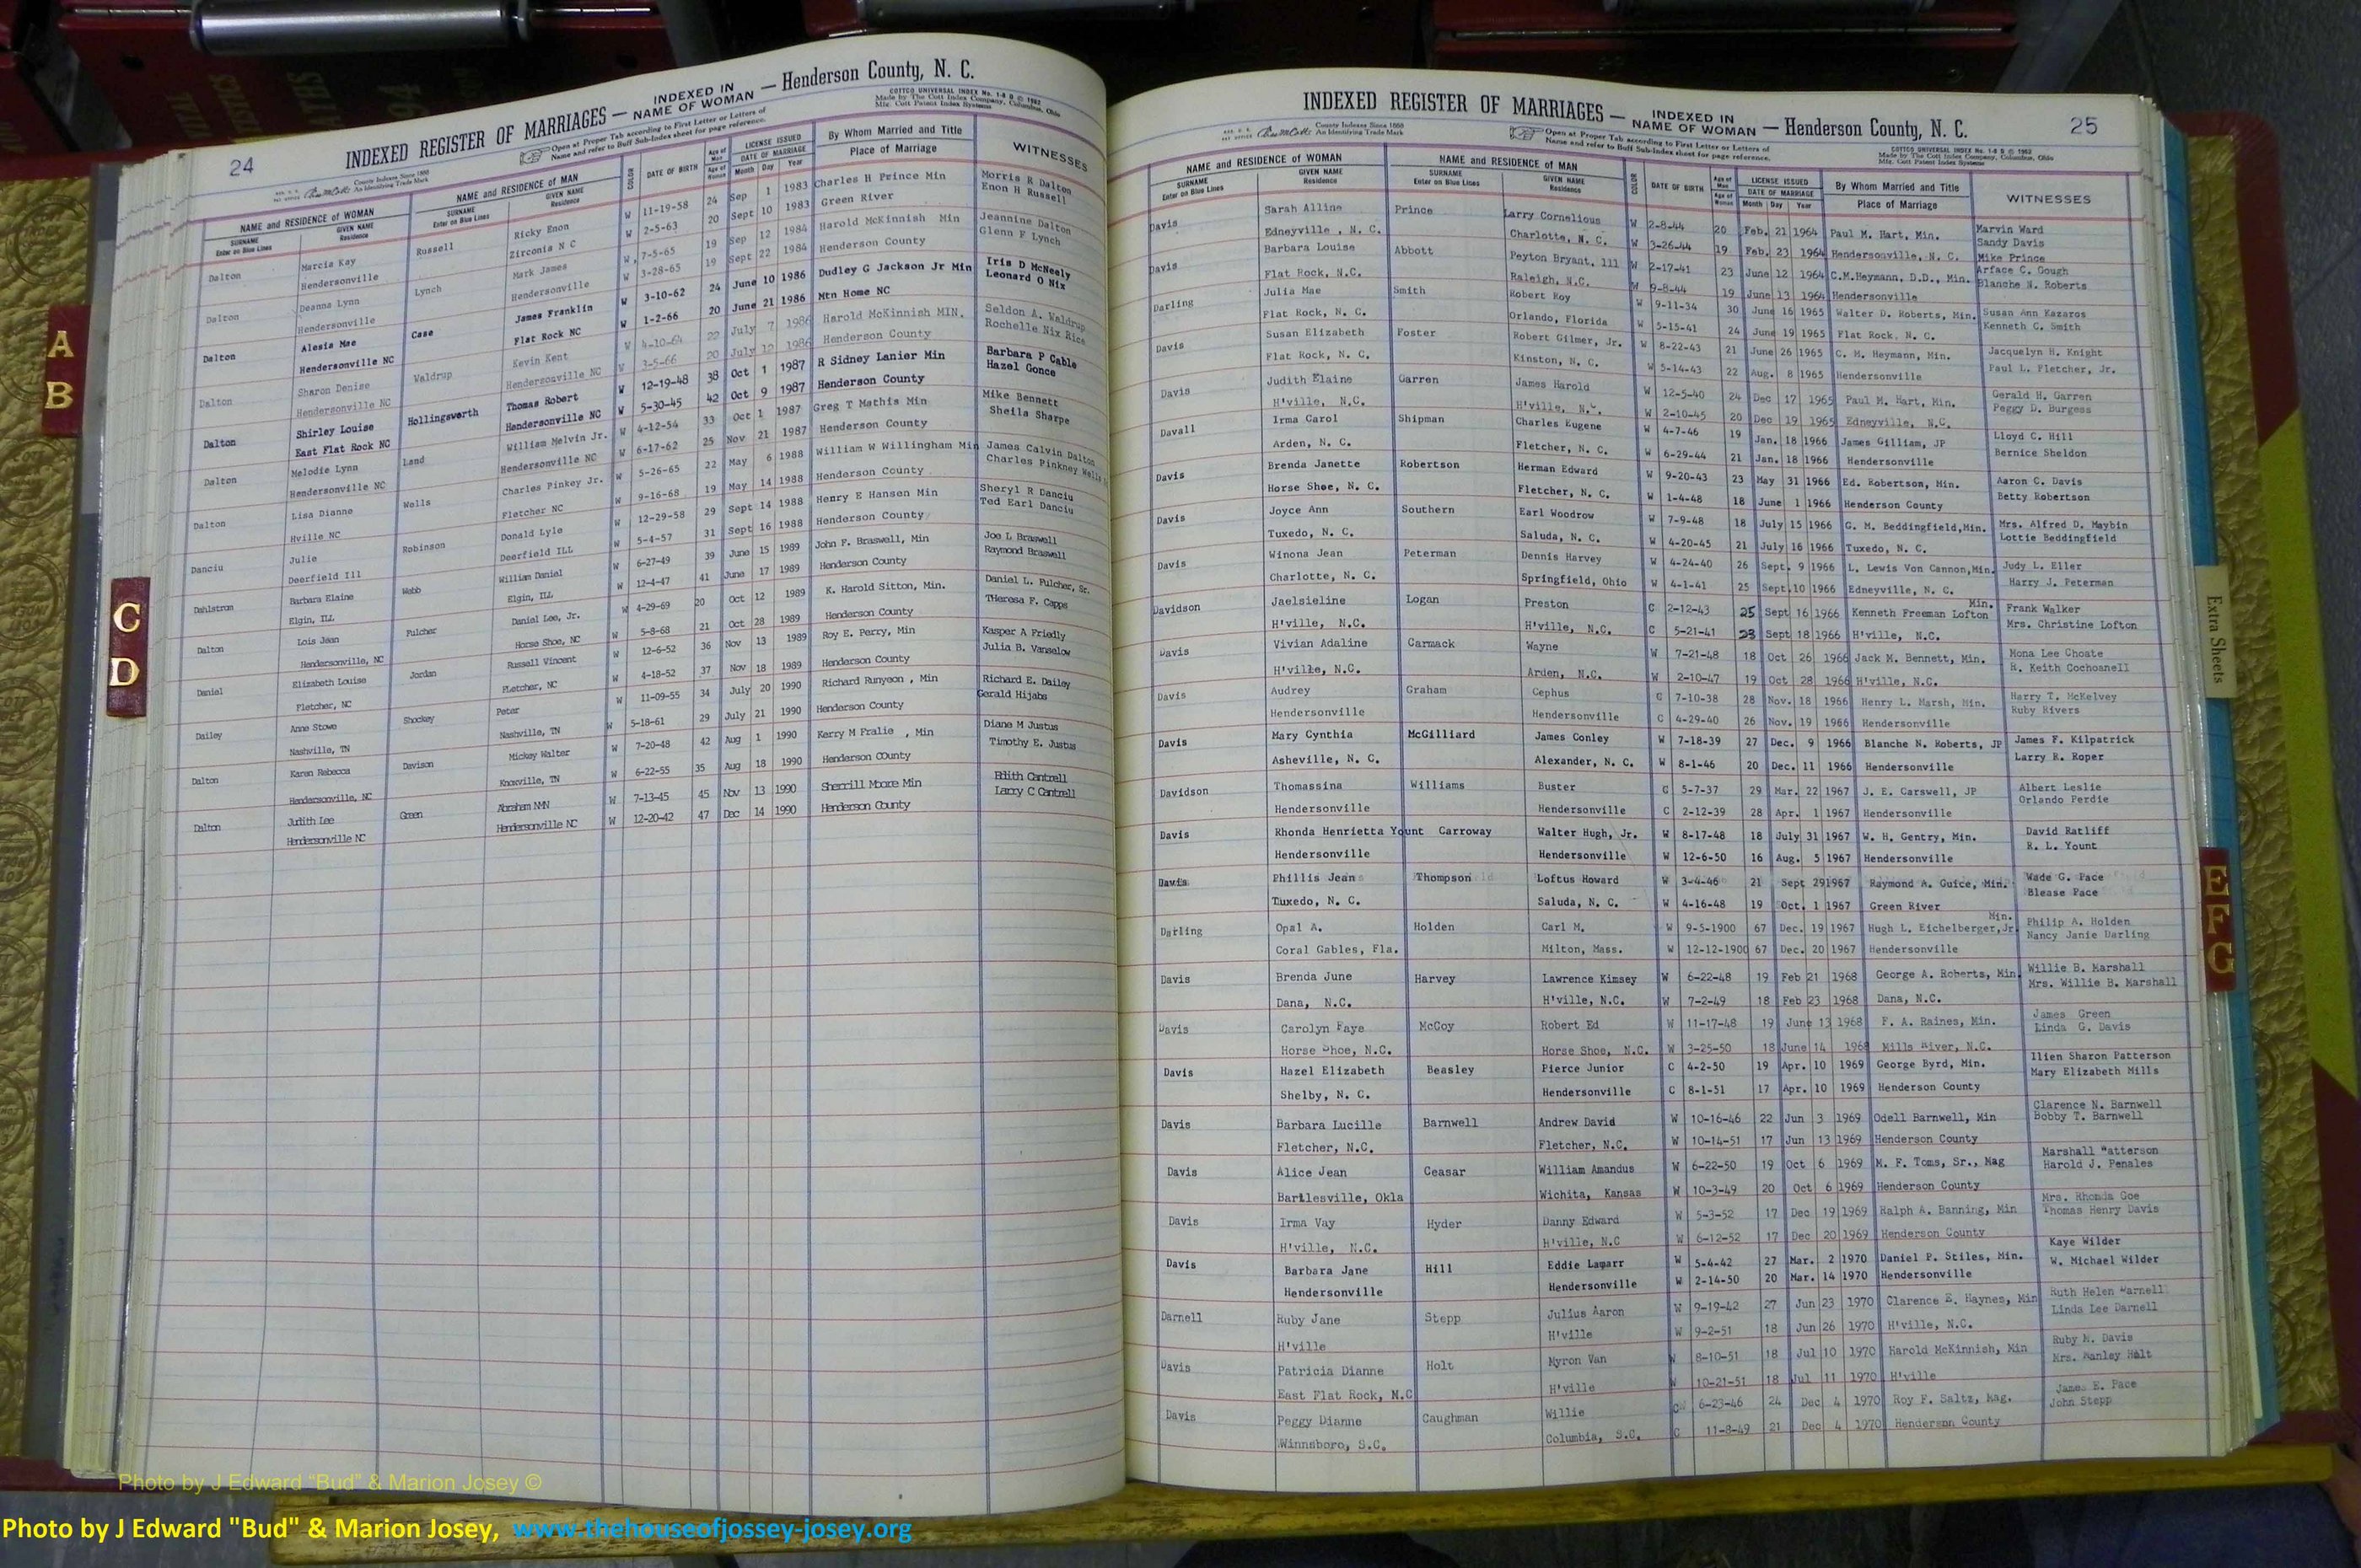 24
INDEXED REGISTER OF MARRIAGES — INDEXED IN NAME OF WOMAN — Henderson County, N. C.
County Indexes Since 1888
An Identifying Trade Mark
Open at Proper Tab according to First Letter or Letters of
Name and refer to Buff Sub-Index sheet for page reference.
COTTCO UNIVERSAL INDEX No. 1-8 B © 1962
Made by The Cott Index Company, Columbus, Ohio
Mfg. Cott Patent Index Systems
NAME and RESIDENCE OF WOMAN NAME and RESIDENCE OF MAN COLOR DATE OF BIRTH Age of Man LICENSE ISSUED By Whom Married and Title WITNESSES
SURNAME GIVEN NAME SURNAME GIVEN NAME Age of Woman DATE OF MARRIAGE Place of Marriage
Enter on Blue Lines Residence Enter on Blue Lines Residence Month Day Year
Dalton Marcia Kay Russell Ricky Enon W 11-19-58 24 Sep 1 1983 Charles H Prince Min Morris R Dalton
Hendersonville Zirconia N C W 2-5-63 20 Sept 10 1983 Green River Enon H Russell
Dalton Deanna Lynn Lynch Mark James W 7-5-65 19 Sep 12 1984 Harold McKinnish Min Jeannine Dalton
Hendersonville Hendersonville W 3-28-65 19 Sept 22 1984 Henderson County Glenn F Lynch
Dalton Alesia Mae Case James Franklin W 3-10-62 24 June 10 1986 Dudley G Jackson Jr Min Iris D McNeely
Hendersonville NC Flat Rock NC W 1-2-66 20 June 21 1986 Mtn Home NC Leonard O Nix
Dalton Sharon Denise Waldrup Kevin Kent W 4-10-64 22 July 7 1986 Harold McKinnish MIN. Seldon A. Waldrup
Hendersonville NC Hendersonville NC W 3-5-66 20 July 12 1986 Henderson County Rochelle Nix Rice
Dalton Shirley Louise Hollingsworth Thomas Robert W 12-19-48 38 Oct 1 1987 R Sidney Lanier Min Barbara P Cable
East Flat Rock NC Hendersonville NC W 5-30-45 42 Oct 9 1987 Henderson County Hazel Gonce
Dalton Melodie Lynn Land William Melvin Jr. W 4-12-54 33 Oct 1 1987 Greg T Mathis Min Mike Bennett
Hendersonville NC Hendersonville NC W 6-17-62 25 Nov 21 1987 Henderson County Sheila Sharpe
Dalton Lisa Dianne Wells Charles Pinkey Jr. W 5-26-65 22 May 6 1988 William W Willingham Min James Calvin Dalton
Hville NC Fletcher NC W 9-16-68 19 May 14 1988 Henderson County Charles Pinkney Wells
Danciu Julie Robinson Donald Lyle W 12-29-58 29 Sept 14 1988 Henry E Hansen Min Sheryl R Danciu
Deerfield Ill Deerfield ILL W 5-4-57 31 Sept 16 1988 Henderson County Ted Earl Danciu
Dahlstrom Barbara Elaine Webb William Daniel W 6-27-49 39 June 15 1989 John F. Braswell, Min Joe L Braswell
Elgin, ILL Elgin, ILL W 12-4-47 41 June 17 1989 Henderson County Raymond Braswell
Dalton Lois Jean Fulcher Daniel Lee, Jr. W 4-29-69 20 Oct 12 1989 K. Harold Sitton, Min. Daniel L. Fulcher, Sr.
Hendersonville, NC Horse Shoe, NC W 5-8-68 21 Oct 28 1989 Henderson County Theresa F. Capps
Daniel Elizabeth Louise Jordan Russell Vincent W 12-6-52 36 Nov 13 1989 Roy E. Perry, Min Kasper A Friedly
Fletcher, NC Fletcher, NC W 4-18-52 37 Nov 18 1989 Henderson County Julia B. Vanselow
Dailey Anne Stowe Shockey Peter W 11-09-55 34 July 20 1990 Richard Runyeon , Min Richard E. Dailey
Nashville, TN Nashville, TN W 5-18-61 29 July 21 1990 Henderson County Gerald Hijabs
Dalton Karen Rebecca Davison Mickey Walter W 7-20-48 42 Aug 1 1990 Kerry M Fralie , Min Diane M Justus
Hendersonville, NC Knoxville, TN W 6-22-55 35 Aug 18 1990 Henderson COunty Timothy E. Justus
Dalton Judith Lee Green Abraham NMN W 7-13-45 45 Nov 13 1990 Sherrill Moore Min Edith Cantrell
Hendersonville NC Hendersonville NC W 12-20-42 47 Dec 14 1990 Henderson County Larry C Cantrell
25
INDEXED REGISTER OF MARRIAGES — INDEXED IN NAME OF WOMAN — Henderson County, N. C.
County Indexes Since 1888
An Identifying Trade Mark
Open at Proper Tab according to First Letter or Letters of
Name and refer to Buff Sub-Index sheet for page reference.
COTTCO UNIVERSAL INDEX No. 1-8 B © 1962
Made by The Cott Index Company, Columbus, Ohio
Mfg. Cott Patent Index Systems
NAME and RESIDENCE OF WOMAN NAME and RESIDENCE OF MAN COLOR DATE OF BIRTH Age of Man LICENSE ISSUED By Whom Married and Title WITNESSES
SURNAME GIVEN NAME SURNAME GIVEN NAME Age of Woman DATE OF MARRIAGE Place of Marriage
Enter on Blue Lines Residence Enter on Blue Lines Residence Month Day Year
Davis Sarah Alline Prince Larry Cornelious W 2-8-44 20 Feb. 21 1964 Paul M. Hart, Min. Marvin Ward
Sandy Davis
Edneyville , N. C. Charlotte, N. C. W 3-26-44 19 Feb. 23 1964 Hendersonville, N. C. Mike Prince
Davis Barbara Louise Abbott Peyton Bryant, 111 W 2-17-41 23 June 12 1964 C.M.Heymann, D.D., Min. Arface C. Gough
Flat Rock, N.C. Raleigh, N.C. W 9-8-44 19 June 13 1964 Hendersonville Blanche N. Roberts
Darling Julia Mae Smith Robert Roy W 9-11-34 30 June 16 1965 Walter D. Roberts, Min. Susan Ann Kazaros
Flat Rock, N. C. Orlando, Florida W 5-15-41 24 June 19 1965 Flat Rock, N. C. Kenneth C. Smith
Davis Susan Elizabeth Foster Robert Gilmer, Jr. W 8-22-43 21 June 26 1965 C. M. Heymann, Min. Jacquelyn H. Knight
Flat Rock, N. C. Kinston, N. C. W 5-14-43 22 Aug. 8 1965 Hendersonville Paul L. Fletcher, Jr.
Davis Judith Elaine Garren James Harold W 12-5-40 24 Dec 17 1965 Paul M. Hart, Min. Gerald H. Garren
H'ville, N.C. H'ville, N.C. W 2-10-45 20 Dec 19 1965 Edneyville, N.C. Peggy D. Burgess
Davall Irma Carol Shipman Charles Eugene W 4-7-46 19 Jan. 18 1966 James Gilliam, JP Lloyd C. Hill
Arden, N. C. Fletcher, N. C. W 6-29-44 21 Jan. 18 1966 Hendersonville Bernice Sheldon
Davis Brenda Janette Robertson Herman Edward W 9-20-43 23 May 31 1966 Ed. Robertson, Min. Aaron C. Davis
Horse Shoe, N. C. Fletcher, N. C. W 1-4-48 18 June 1 1966 Henderson County Betty Robertson
Davis Joyce Ann Southern Earl Woodrow W 7-9-48 18 July 15 1966 G. M. Beddingfield,Min. Mrs. Alfred D. Maybin
Tuxedo, N. C. Saluda, N. C. W 4-20-45 21 July 16 1966 Tuxedo, N. C. Lottie Beddingfield
Davis Winona Jean Peterman Dennis Harvey W 4-24-40 26 Sept. 9 1966 L. Lewis Von Cannon,Min. Judy L. Eller
Charlotte, N. C. Springfield, Ohio W 4-1-41 25 Sept.10 1966 Edneyville, N. C. Harry J. Peterman
Davidson Jaelsieline Logan Preston C 2-12-43 25 Sept 16 1966 Kenneth Freeman Lofton Min. Frank Walker
H'ville, N.C. H'ville, N.C. C 5-21-41 23 Sept 18 1966 H'ville, N.C. Mrs. Christine Lofton
Davis Vivian Adaline Carmack Wayne W 7-21-48 18 Oct 26 1966 Jack M. Bennett, Min. Mona Lee Choate
H'ville, N.C. Arden, N.C. W 2-10-47 19 Oct 28 1966 H'ville, N.C. R. Keith Cochoanell
Davis Audrey Graham Cephus C 7-10-38 28 Nov. 18 1966 Henry L. Marsh, Min. Harry T. McKelvey
Hendersonville Hendersonville C 4-29-40 26 Nov. 19 1966 Hendersonville Ruby Rivers
Davis Mary Cynthia McGilliard James Conley W 7-18-39 27 Dec. 9 1966 Blanche N. Roberts, JP James F. Kilpatrick
Asheville, N. C. Alexander, N. C. W 8-1-46 20 Dec. 11 1966 Hendersonville Larry R. Roper
Davidson Thomassina Williams Buster C 5-7-37 29 Mar. 22 1967 J. E. Carswell, JP Albert Leslie
Hendersonville Hendersonville C 2-12-39 28 Apr. 1 1967 Hendersonville Orlando Perdie
Davis Rhonda Henrietta Yount Carroway Walter Hugh, Jr. W 8-17-48 18 July 31 1967 W. H. Gentry, Min. David Ratliff
Hendersonville Hendersonville W 12-6-50 16 Aug. 5 1967 Hendersonville R. L. Yount
Davis Phillis Jean Thompson Loftus Howard W 3-4-46 21 Sept 29 1967 Raymond A. Guice, Min. Wade G. Pace
Tuxedo, N. C. Saluda, N. C. W 4-16-48 19 Oct. 1 1967 Green River Blease Pace
Darling Opal A. Holden Carl M. W 9-5-1900 67 Dec. 19 1967 Hugh L. Eichelberger,Jr Min. Philip A. Holden
Coral Gables, Fla. Milton, Mass. W 12-12-1900 67 Dec. 20 1967 Hendersonville Nancy Janie Darling
Davis Brenda June Harvey Lawrence Kimsey W 6-22-48 19 Feb 21 1968 George A. Roberts, Min. Willie B. Marshall
Dana, N.C. H'ville, N.C. W 7-2-49 18 Feb 23 1968 Dana, N.C. Mrs. Willie B. Marshall
Davis Carolyn Faye McCoy Robert Ed W 11-17-48 19 June 13 1968 F. A. Raines, Min. James Green
Horse Shoe, N.C. Horse Shoe, N.C. W 3-25-50 18 June 14 1968 Mills River, N.C. Linda G. Davis
Davis Hazel Elizabeth Beasley Pierce Junior C 4-2-50 19 Apr. 10 1969 George Byrd, Min. Ilien Sharon Patterson
Shelby, N. C. Hendersonville C 8-1-51 17 Apr. 10 1969 Henderson County Mary Elizabeth Mills
Davis Barbara Lucille Barnwell Andrew David W 10-16-46 22 Jun 3 1969 Odell Barnwell, Min Clarence N. Barnwell
Fletcher, N.C. Fletcher, N.C. W 10-14-51 17 Jun 13 1969 Henderson County Bobby T. Barnwell
Davis Alice Jean Ceasar William Amandus W 6-22-50 19 Oct 6 1969 M. F. Toms, Sr., Mag Marshall "atterson
Bartlesville, Okla Wichita, Kansas W 10-3-49 20 Oct 6 1969 Henderson County Harold J. Penales
Davis Irma Vay Hyder Danny Edward W 5-3-52 17 Dec 19 1969 Ralph A. Banning, Min Mrs. Rhonda Goe
H'ville, N.C. H'ville, N.C W 6-12-52 17 Dec 20 1969 Henderson County Thomas Henry Davis
Davis Barbara Jane Hill Eddie Lamarr W 5-4-42 27 Mar. 2 1970 Daniel P. Stiles, Min. Kaye Wilder
Hendersonville Hendersonville W 2-14-50 20 Mar. 14 1970 Hendersonville W. Michael Wilder
Darnell Ruby Jane Stepp Julius Aaron W 9-19-42 27 Jun 23 1970 Clarence E. Haynes, Min Ruth Helen Darnell
H'ville H'ville W 9-2-51 18 Jun 26 1970 H'ville, N.C. Linda Lee Darnell
Davis Patricia Dianne Holt Myron Van W 8-10-51 18 Jul 10 1970 Harold McKinnish, Min Ruby M. Davis
East Flat Rock, N.C H'ville W 10-21-51 18 Jul 11 1970 H'ville Mrs. Manley Holt
Davis Peggy Dianne Caughman Willie C 6-23-46 24 Dec 4 1970 Roy F. Saltz, Mag. James E. Pace
Winnsboro, S.C. Columbia, S.C. C 11-8-49 21 Dec 4 1970 Henderson County John Stepp
A
B
C
D
Extra Sheets
E
F
G
Photo by J Edward “Bud” & Marion Josey ©
Photo by J Edward "Bud" & Marion Josey, www.thehouseofjossey-josey.org